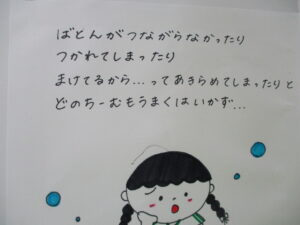 ばとんがつながらなかったり
つかれてしまったり
まけてるから...ってあきらめてしまったりと
どのちーむもうまくはいかず...